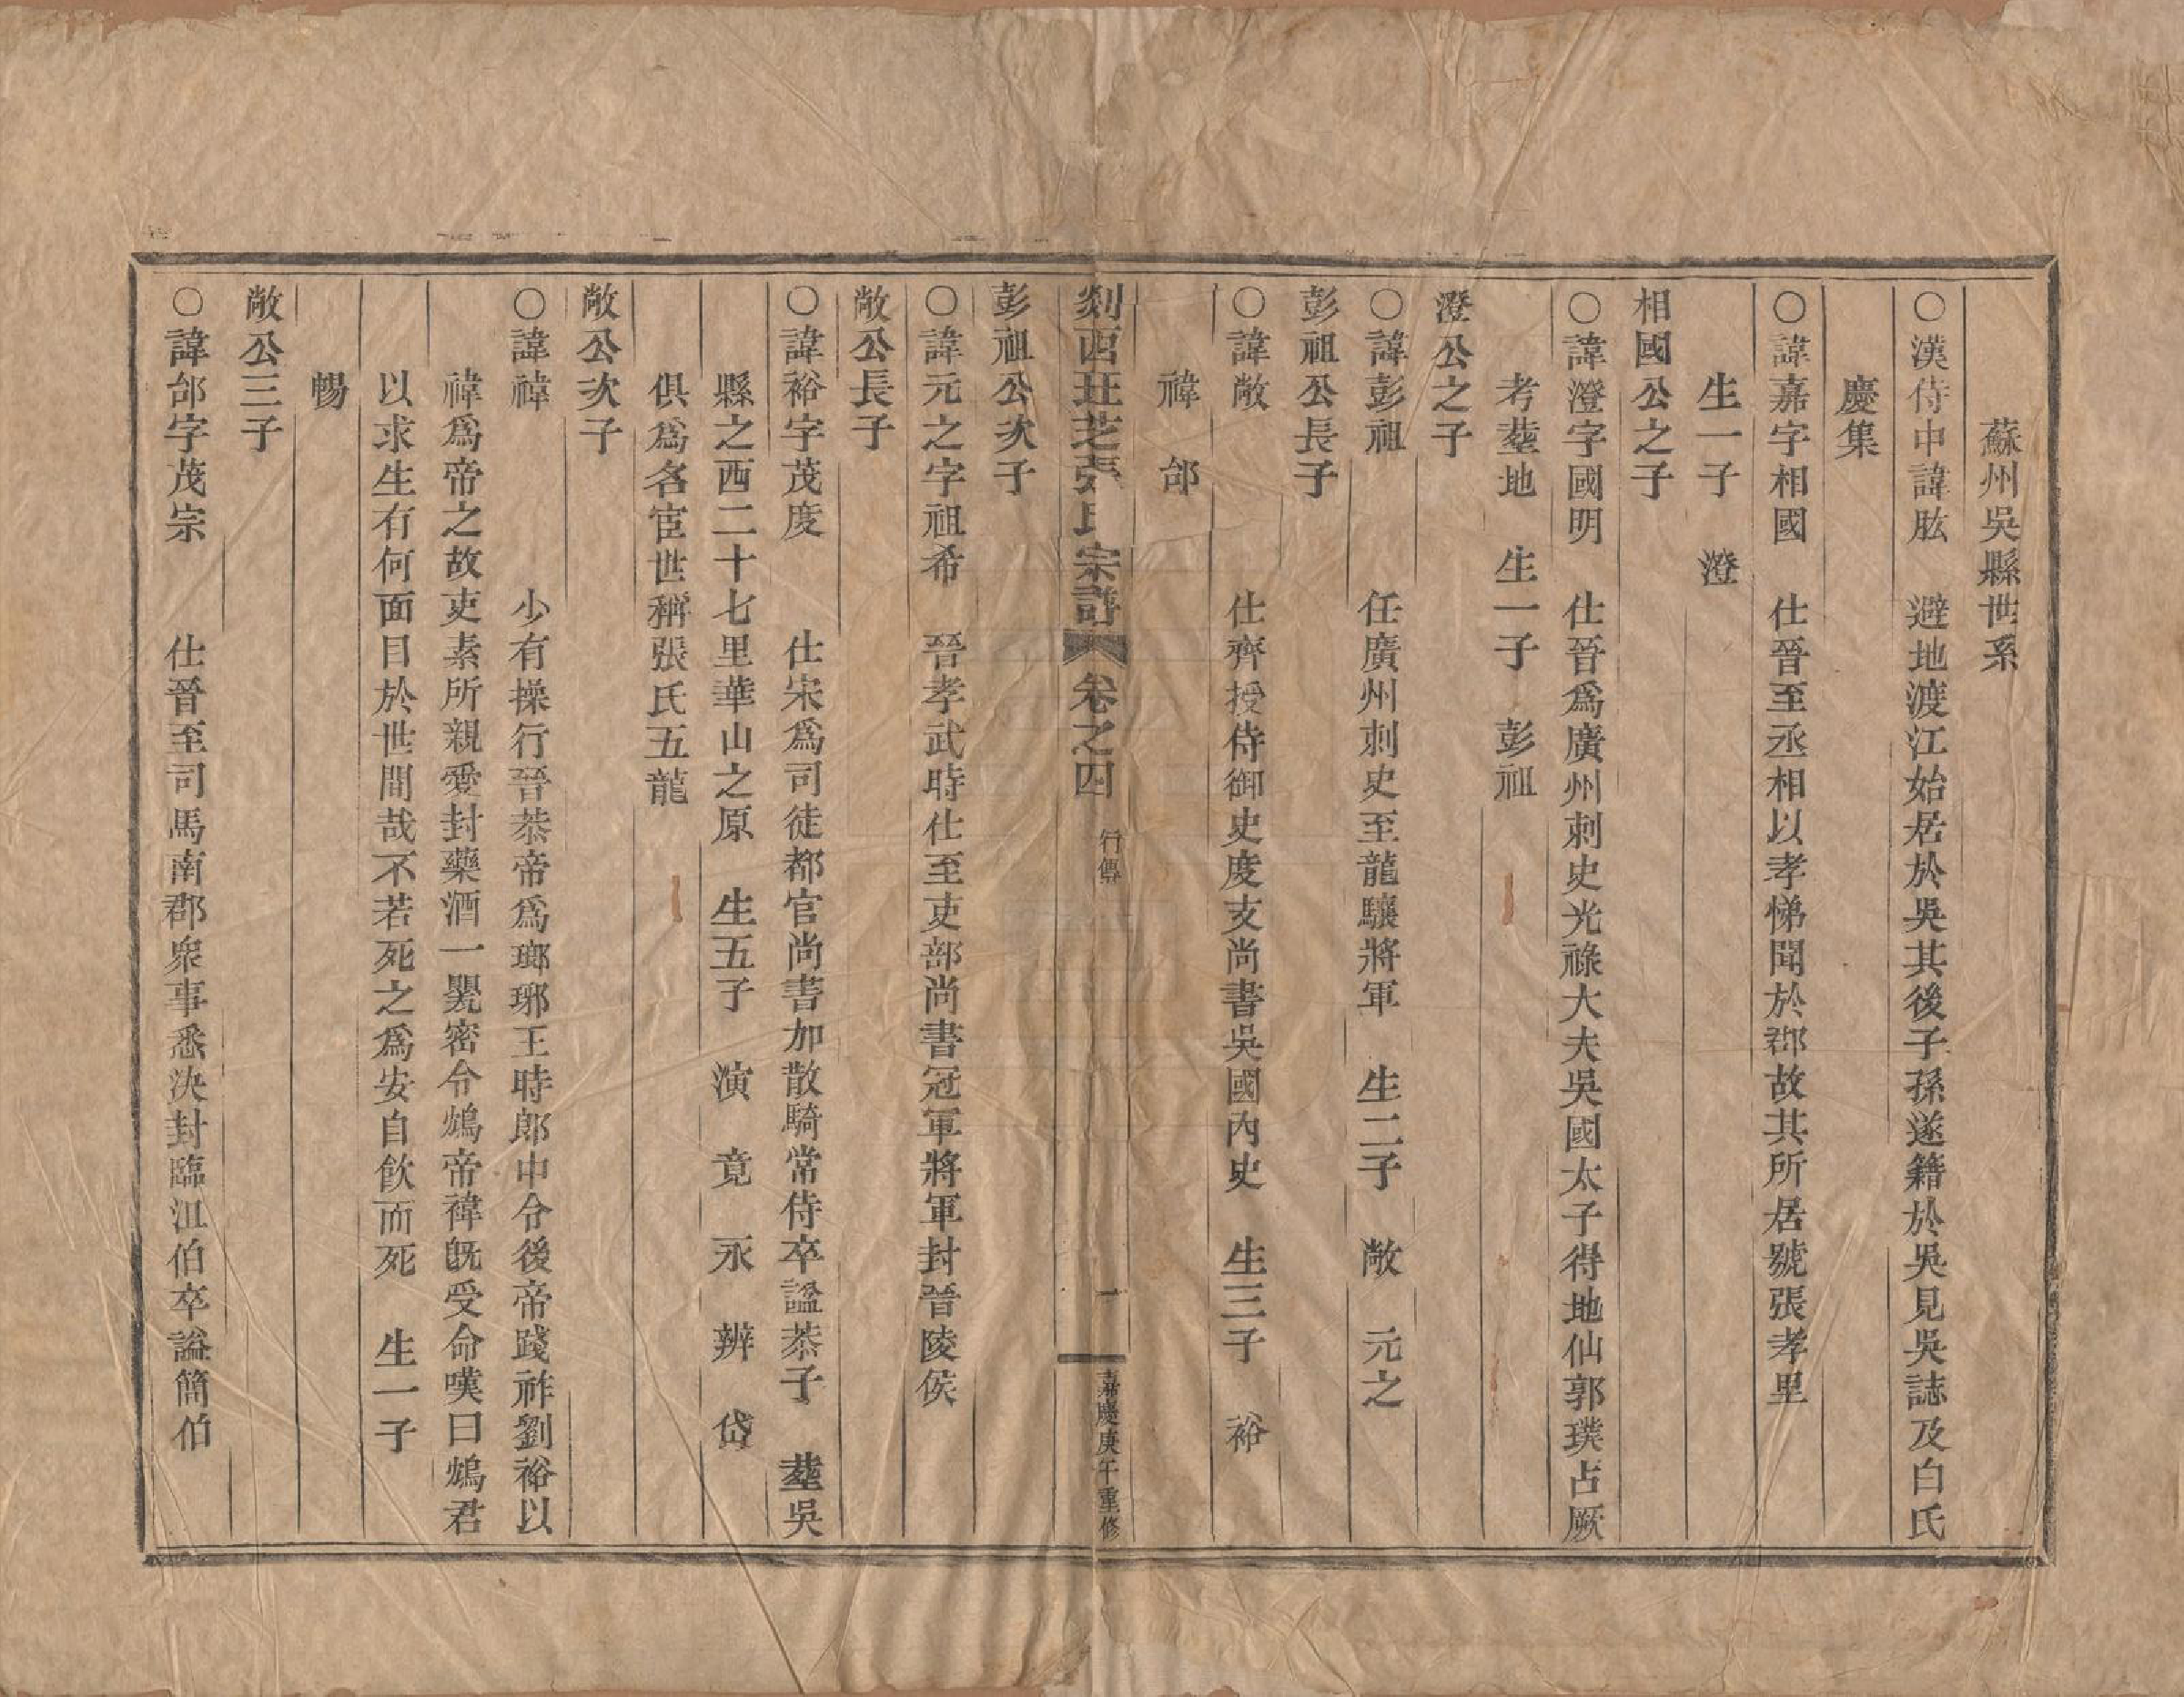 蘇州吳縣世系
○漢侍中諱肱　避地渡江始居於吳其後子孫遂籍於吳見吳誌及白氏
慶集
○諱嘉字相國　仕晉至丞相以孝悌聞於郡故其所居號張孝里
生一子　澄
相國公之子
○諱澄字國明　仕晉爲廣州刺史光祿大夫吳國太子得地仙郭璞占厥
考塟地　生一子　彭祖
澄公之子
○諱彭祖　任廣州刺史至龍驤將軍　生二子　敞　元之
彭祖公長子
○諱敞　仕齊授侍御史度支尚書吳國內史　生三子　裕
禕　邰
剡西珏芝張氏宗譜　卷之四　行傳　一　嘉慶庚午重修
彭祖公次子
○諱元之字祖希　晉孝武時仕至吏部尚書冠軍將軍封晉陵侯
敞公長子
○諱裕字茂度　仕宋爲司徒都官尚書加散騎常侍卒謚恭子　塟吳
縣之西二十七里華山之原　生五子　演　竟　永　辨　岱
俱爲名宦世稱張氏五龍
敞公次子
○諱禕　少有操行晉恭帝爲瑯琊王時郎中令後帝踐祚劉裕以
禕爲帝之故吏素所親愛封藥酒一甖密令鴆帝禕旣受命嘆曰鴆君
以求生有何面目於世間哉不若死之爲安自飮而死　生一子
暢
敞公三子
○諱邰字茂宗　仕晉至司馬南郡衆事悉決封臨沮伯卒謚簡伯